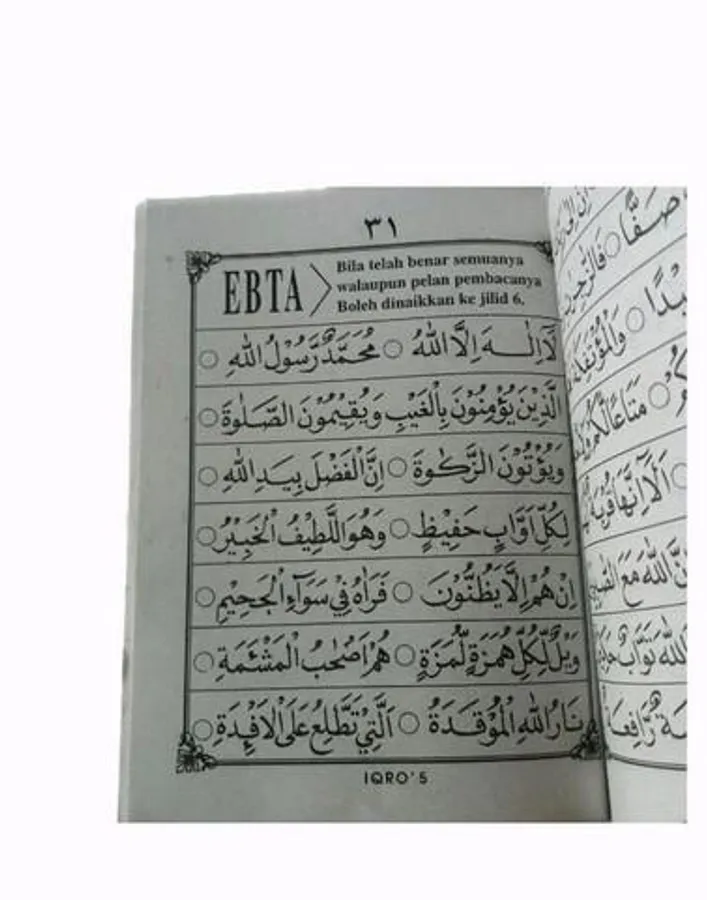 ٣١
EBTA
Bila telah benar semuanya
walaupun pelan pembacanya
Boleh dinaikkan ke jilid 6.
لَآ اِلٰـهَ اِلَّا اللّٰهُ ○ مُحَمَّدٌ رَّسُوْلُ اللّٰهِ ○
الَّذِيْنَ يُؤْمِنُوْنَ بِالْغَيْبِ وَيُقِيْمُوْنَ الصَّلٰوةَ ○
وَيُؤْتُوْنَ الزَّكٰوةَ ○ اِنَّ الْفَضْلَ بِيَدِ اللّٰهِ ○
لِكُلِّ اَوَّابٍ حَفِيْظٍ ○ وَهُوَ اللَّطِيْفُ الْخَبِيْرُ ○
اِنْ هُمْ اِلَّا يَظُنُّوْنَ ○ فَرَاٰهُ فِيْ سَوَآءِ الْجَحِيْمِ ○
وَيْلٌ لِّكُلِّ هُمَزَةٍ لُّمَزَةٍ ○ هُمْ اَصْحٰبُ الْمَشْئَمَةِ ○
نَارُ اللّٰهِ الْمُوْقَدَةُ ○ الَّتِيْ تَطَّلِعُ عَلَى الْاَفْئِدَةِ ○
IQRO' 5
صَفًّا ○ فَالزّٰجِرٰتِ
مَتَاعًا لَّكُمْ
اَلَآ اِنَّهَا قُرْبَةٌ
اللّٰهَ مَعَ
اللّٰهَ تَوَّابٌ